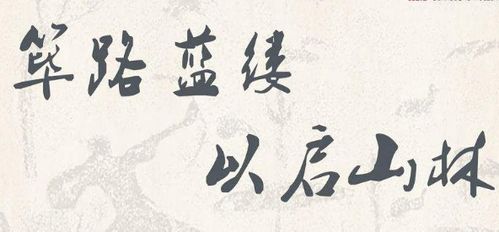 筚路蓝缕
以启山林